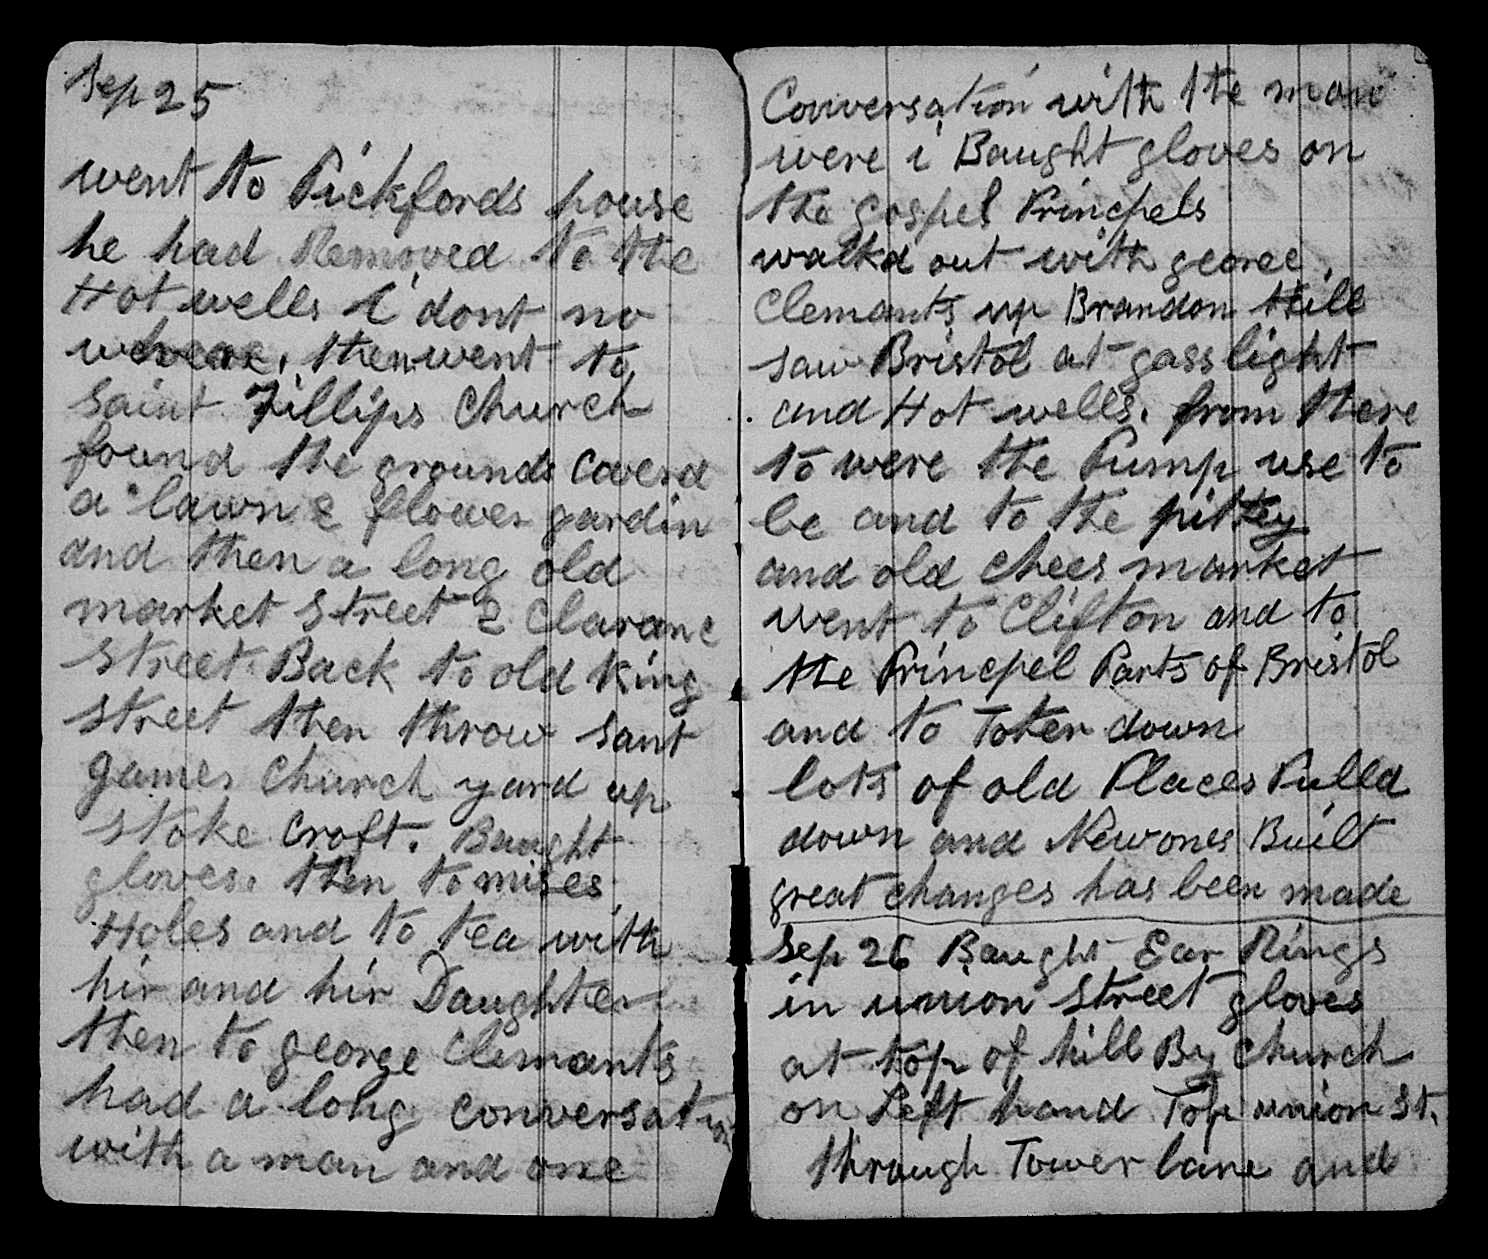 Sep 25
went to Pickfords house
he had Removed to the
Hot wells i dont no
wheare, then went to
Saint Fillips Church
found the grounds Coverd
a lawn & flower gardin
and then a long old
market Street & Claranc
Street Back to old King
Street then throw Sant
James Church yard up
Stoke Croft. Baught
gloves. then to mises
Holes and to tea with
hir and hir Daughter
then to george Clemants
had a long Conversation
with a man and one
Conversation with the man
were i Baught gloves on
the gospel Principels
walkd out with george
Clemants up Brandon Hill
saw Bristol at gass light
and Hot wells. from there
to were the Pump use to
be and to the pittey
and old Chees market
went to Clifton and to
the Princpel Parts of Bristol
and to Toter down
lots of old Places Pulld
down and New ones Built
great changes has been made
Sep 26 Baught Ear Rings
in union Street gloves
at top of hill By Church
on Left hand Top union St.
through Tower lane and